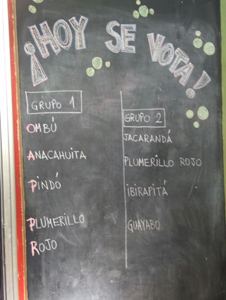 ¡HOY SE VOTA!
GRUPO 1
OMBÚ
ANACAHUITA
PINDÓ
PLUMERILLO
ROJO
GRUPO 2
JACARANDÁ
PLUMERILLO ROJO
IBIRAPITÁ
GUAYABO